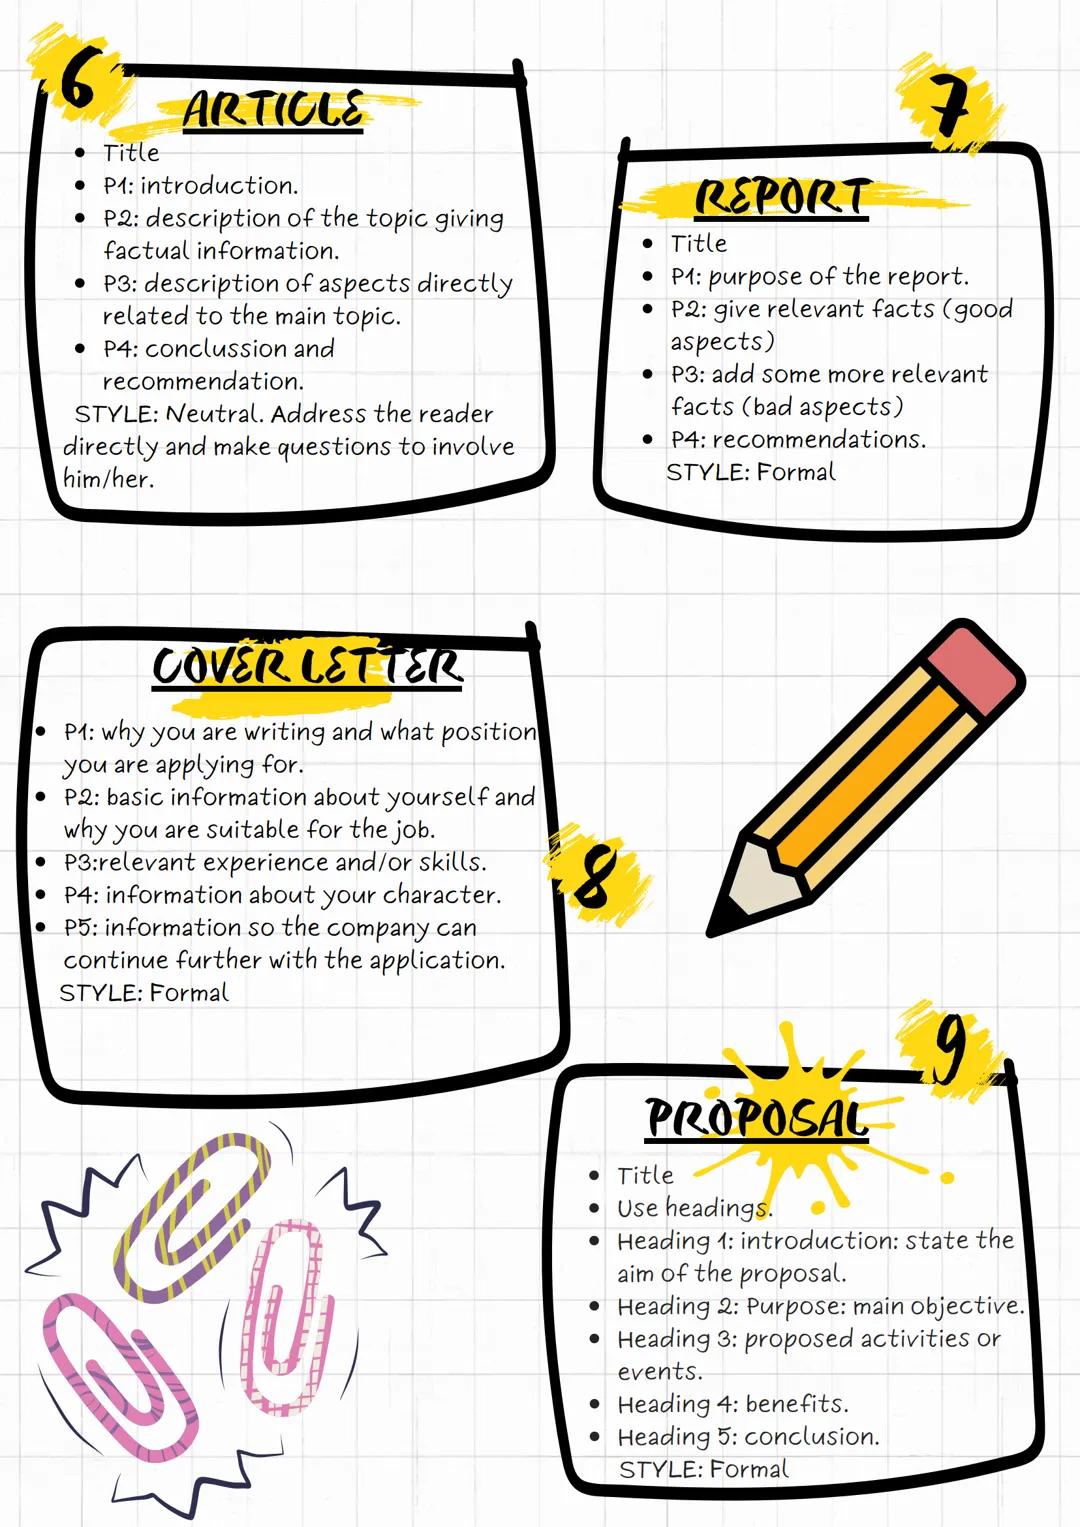 6
ARTICLE
Title
P1: introduction.
P2: description of the topic giving
factual information.
P3: description of aspects directly
related to the main topic.
P4: conclussion and
recommendation.
STYLE: Neutral. Address the reader
directly and make questions to involve
him/her.
7
REPORT
Title
P1: purpose of the report.
P2: give relevant facts (good
aspects)
P3: add some more relevant
facts (bad aspects)
P4: recommendations.
STYLE: Formal
COVER LETTER
P1: why you are writing and what position
you are applying for.
P2: basic information about yourself and
why you are suitable for the job.
P3:relevant experience and/or skills.
P4: information about your character.
P5: information so the company can
continue further with the application.
STYLE: Formal
8
9
PROPOSAL
Title
Use headings.
Heading 1: introduction: state the
aim of the proposal.
Heading 2: Purpose: main objective.
Heading 3: proposed activities or
events.
Heading 4: benefits.
Heading 5: conclusion.
STYLE: Formal